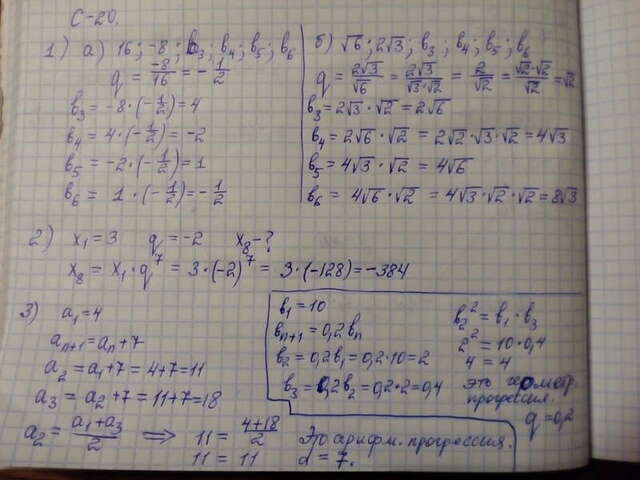 С-20.
1) а) 16; -8; b₃; b₄; b₅; b₆
q = -8/16 = -1/2
b₃ = -8·(-1/2) = 4
b₄ = 4·(-1/2) = -2
b₅ = -2·(-1/2) = 1
b₆ = 1·(-1/2) = -1/2
б) √6; 2√3; b₃; b₄; b₅; b₆
q = 2√3/√6 = 2√3/√3·√2 = 2/√2 = √2·√2/√2 = √2
b₃ = 2√3·√2 = 2√6
b₄ = 2√6·√2 = 2√2·√3·√2 = 4√3
b₅ = 4√3·√2 = 4√6
b₆ = 4√6·√2 = 4√3·√2·√2 = 8√3
2) x₁ = 3 q = -2 x₈ - ?
x₈ = x₁·q⁷ = 3·(-2)⁷ = 3·(-128) = -384
3) a₁ = 4
aₙ₊₁ = aₙ + 7
a₂ = a₁ + 7 = 4 + 7 = 11
a₃ = a₂ + 7 = 11 + 7 = 18
a₂ = a₁ + a₃/2 ⟹ 11 = 4 + 18/2
11 = 11
Это арифм. прогрессия.
d = 7.
b₁ = 10
bₙ₊₁ = 0,2bₙ
b₂ = 0,2b₁ = 0,2·10 = 2
b₃ = 0,2b₂ = 0,2·2 = 0,4
b₂² = b₁·b₃
2² = 10·0,4
4 = 4
Это геометр.
прогрессия.
q = 0,2